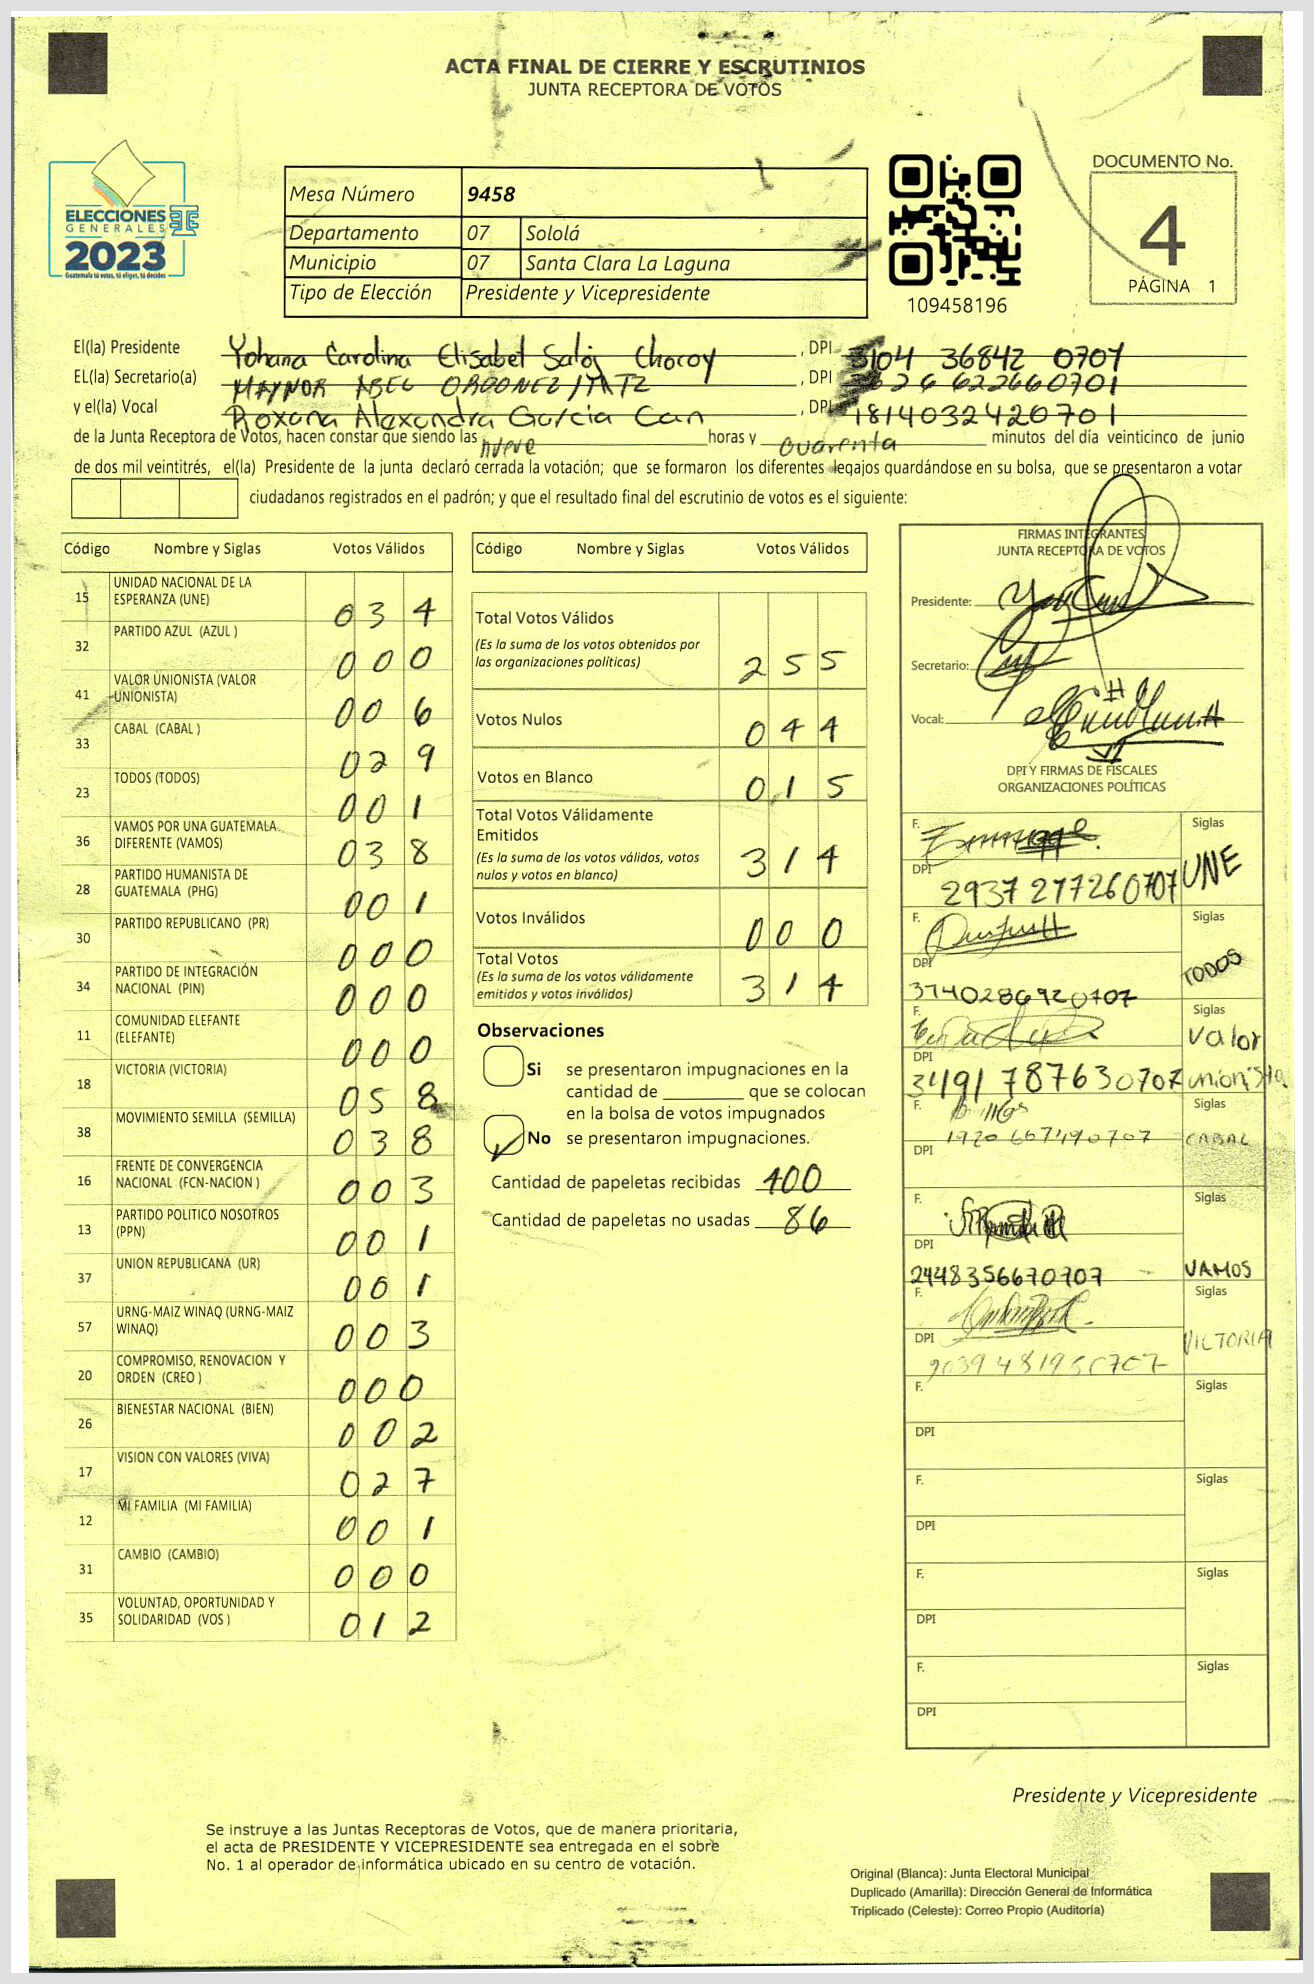 ACTA FINAL DE CIERRE Y ESCRUTINIOS
JUNTA RECEPTORA DE VOTOS
ELECCIONES
GENERALES
2023
Guatemala tú votas, tú eliges, tú decides
Mesa Número 9458
Departamento 07 Sololá
Municipio 07 Santa Clara La Laguna
Tipo de Elección Presidente y Vicepresidente
109458196
DOCUMENTO No.
4
PÁGINA 1
El(la) Presidente Yohana Carolina Elisabet Saloj Chocoy, DPI 3104 36842 0707
EL(la) Secretario(a) MAYNOR ABEL ORDOÑEZ, DPI 2662260701
y el(la) Vocal Roxana Alexandra Garcia Can, DPI 1814032420701
de la Junta Receptora de Votos, hacen constar que siendo las nueve horas y cuarenta minutos del día veinticinco de junio
de dos mil veintitrés, el(la) Presidente de la junta declaró cerrada la votación; que se formaron los diferentes legajos guardándose en su bolsa, que se presentaron a votar
ciudadanos registrados en el padrón; y que el resultado final del escrutinio de votos es el siguiente:
Código Nombre y Siglas Votos Válidos
15 UNIDAD NACIONAL DE LA ESPERANZA (UNE) 034
32 PARTIDO AZUL (AZUL ) 000
41 VALOR UNIONISTA (VALOR UNIONISTA) 006
33 CABAL (CABAL ) 029
23 TODOS (TODOS) 001
36 VAMOS POR UNA GUATEMALA DIFERENTE (VAMOS) 038
28 PARTIDO HUMANISTA DE GUATEMALA (PHG) 001
30 PARTIDO REPUBLICANO (PR) 000
34 PARTIDO DE INTEGRACIÓN NACIONAL (PIN) 000
11 COMUNIDAD ELEFANTE (ELEFANTE) 000
18 VICTORIA (VICTORIA) 058
38 MOVIMIENTO SEMILLA (SEMILLA) 038
16 FRENTE DE CONVERGENCIA NACIONAL (FCN-NACION ) 003
13 PARTIDO POLITICO NOSOTROS (PPN) 001
37 UNION REPUBLICANA (UR) 001
57 URNG-MAIZ WINAQ (URNG-MAIZ WINAQ) 003
20 COMPROMISO, RENOVACION Y ORDEN (CREO ) 000
26 BIENESTAR NACIONAL (BIEN) 002
17 VISION CON VALORES (VIVA) 027
12 MI FAMILIA (MI FAMILIA) 001
31 CAMBIO (CAMBIO) 000
35 VOLUNTAD, OPORTUNIDAD Y SOLIDARIDAD (VOS ) 012
Código Nombre y Siglas Votos Válidos
Total Votos Válidos 255
(Es la suma de los votos obtenidos por
las organizaciones políticas)
Votos Nulos 044
Votos en Blanco 015
Total Votos Válidamente
Emitidos 314
(Es la suma de los votos válidos, votos
nulos y votos en blanco)
Votos Inválidos 000
Total Votos 314
(Es la suma de los votos válidamente
emitidos y votos inválidos)
Observaciones
Si se presentaron impugnaciones en la
cantidad de ________ que se colocan
en la bolsa de votos impugnados
No se presentaron impugnaciones.
Cantidad de papeletas recibidas 400
Cantidad de papeletas no usadas 86
FIRMAS INTEGRANTES
JUNTA RECEPTORA DE VOTOS
Presidente:
Secretario:
Vocal:
DPI Y FIRMAS DE FISCALES
ORGANIZACIONES POLÍTICAS
F. Siglas
DPI 2937 277260707 UNE
F. Siglas
DPI 3740286920707 TODOS
F. Siglas
DPI 3491 787630707 Valor unionista
F. Siglas
DPI 1920 667490707 CABAL
F. Siglas
DPI 2448356670707 VAMOS
F. Siglas
DPI VICTORIA
F. Siglas
DPI
F. Siglas
DPI
F. Siglas
DPI
F. Siglas
DPI
Presidente y Vicepresidente
Se instruye a las Juntas Receptoras de Votos, que de manera prioritaria,
el acta de PRESIDENTE Y VICEPRESIDENTE sea entregada en el sobre
No. 1 al operador de informática ubicado en su centro de votación.
Original (Blanca): Junta Electoral Municipal
Duplicado (Amarilla): Dirección General de Informática
Triplicado (Celeste): Correo Propio (Auditoría)